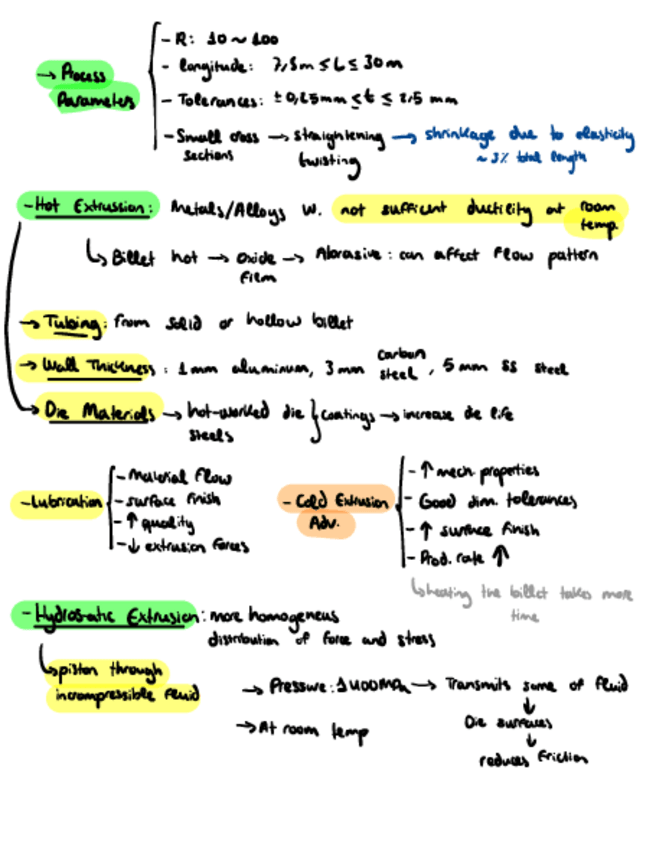 - R: 10 ~ 100
→ Process Parameters
- Longitude: 7,5m ≤ L ≤ 30m
- Tolerances: ± 0,25mm ≤ t ≤ 2,5 mm
- Small cross sections → straightening twisting → shrinkage due to elasticity
~ 3% total length
- Hot Extrussion: Metals/Alloys w. not sufficent ductility at room temp.
↳ Billet hot → oxide film → Abrasive: can affect flow pattern
→ Tubing: from solid or hollow billet
→ Wall Thickness: 1mm aluminum, 3mm carbon steel, 5mm SS steel
→ Die Materials → hot-worked die steels } coatings → increase die life
- Lubrication
- Material Flow
- surface finish
- ↑ quality
- ↓ extrusion forces
- Cold Extrusion
Adv.
- ↑ mech. properties
- Good dim. tolerances
- ↑ surface finish
- Prod. rate ↑
↳ heating the billet takes more
time
- Hydrostatic Extrusion: more homogeneus
distribution of force and stress
↳ piston through
incompressible fluid
→ Pressure: 1400MPa → Transmits some of fluid
↓
Die surfaces
↓
reduces friction
→ At room temp